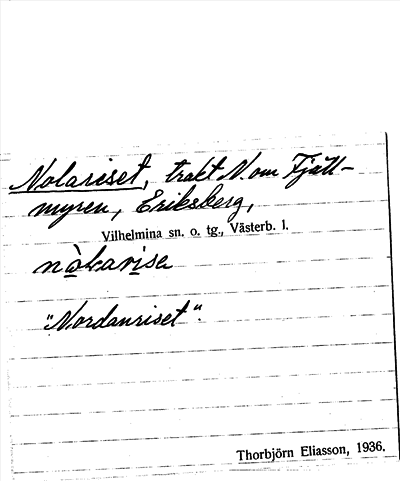 Nolariset, trakt N. om Fjäll-
myren, Eriksberg,
Vilhelmina sn. o. tg., Västerb. l.
nò̱larise
"Nordanriset".
Thorbjörn Eliasson, 1936.